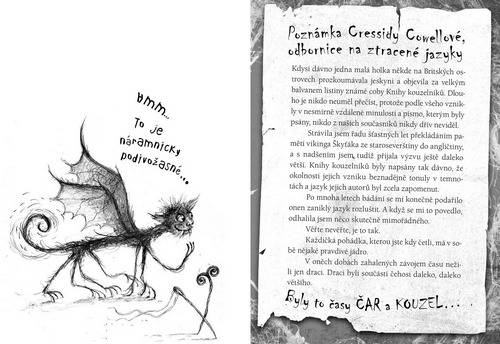 ƎMM...
TO JE
NÁRAMNICKY
PODIVOŽASNÉ...
Poznámka Cressidy Cowellové,
odbornice na ztracené jazyky
Kdysi dávno jedna malá holka někde na Britských os-
trovech prozkoumávala jeskyni a objevila za velkým
balvanem listiny známé coby Knihy kouzelníků. Dlou-
ho je nikdo neuměl přečíst, protože podle všeho vznik-
ly v nesmírně vzdálené minulosti a písmo, kterým byly
psány, nikdo z našich současníků nikdy dřív neviděl.
Strávila jsem řadu šťastných let překládáním pa-
mětí vikinga Škyťáka ze staroseverštiny do angličtiny,
a s nadšením jsem tudíž přijala výzvu ještě daleko
větší. Knihy kouzelníků byly napsány tak dávno, že
okolnosti jejich vzniku beznadějně tonuly v temno-
tách a jazyk jejich autorů byl zcela zapomenut.
Po mnoha letech bádání se mi konečně podařilo
onen zaniklý jazyk rozluštit. A když se mi to povedlo,
odhalila jsem něco skutečně mimořádného.
Věřte nevěřte, je to tak.
Každičká pohádka, kterou jste kdy četli, má v so-
bě nějaké pravdivé jádro.
V oněch dobách zahalených závojem času neži-
li jen draci. Draci byli součástí čehosi daleko, daleko
většího.
Byly to časy ČAR a KOUZEL...